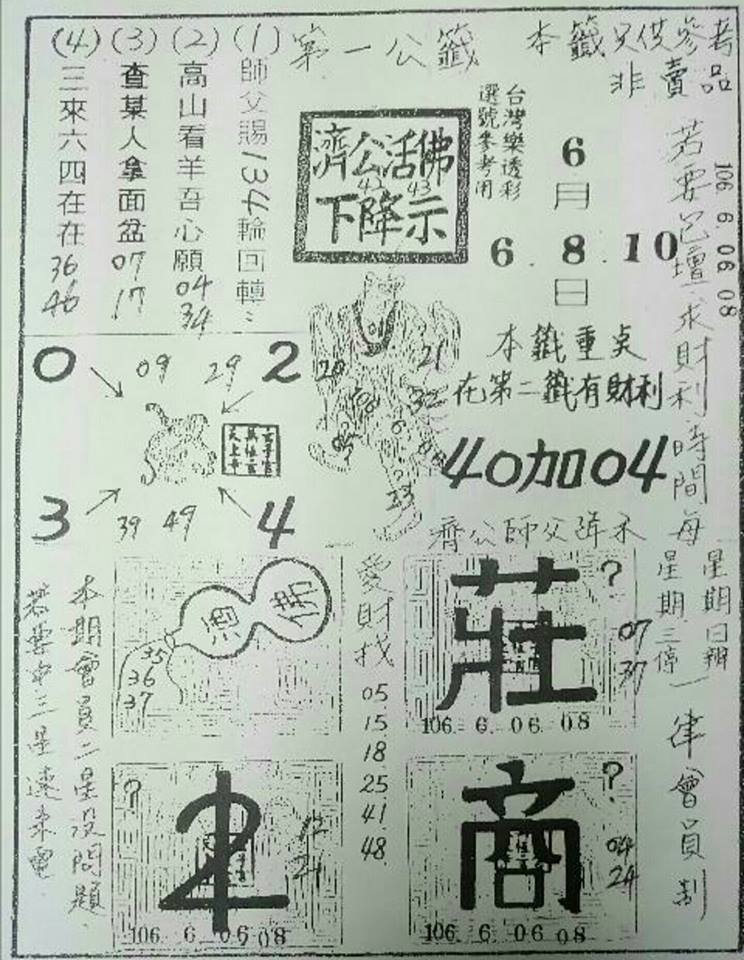 本籤只供參考
非賣品
第一公籤
(1)師父賜134輪回轉
(2)高山看羊吾心願 04 34
(3)查某人拿面盆 07 17
(4)三來六四在在 36 46
濟公活佛
42 43
下降示
台灣樂透彩
選號參考用
6月
6.8.10日
106.6.06 08
若要巳壇求財利時間每
星期日辦
星期三停
一律會員制
本籤重点
在第二籤有財利
40加04
濟公師父降示
0
09
29
2
3
39
49
4
01
20
21
32
108
6
23
愛財找
05
15
18
25
41
48
35
36
37
莊
?
07
37
106.6.06.08
?
12
21
106 6 06 08
商
?
04
24
106.6.06.08
本期會員二星沒問題
若要中三星速來電